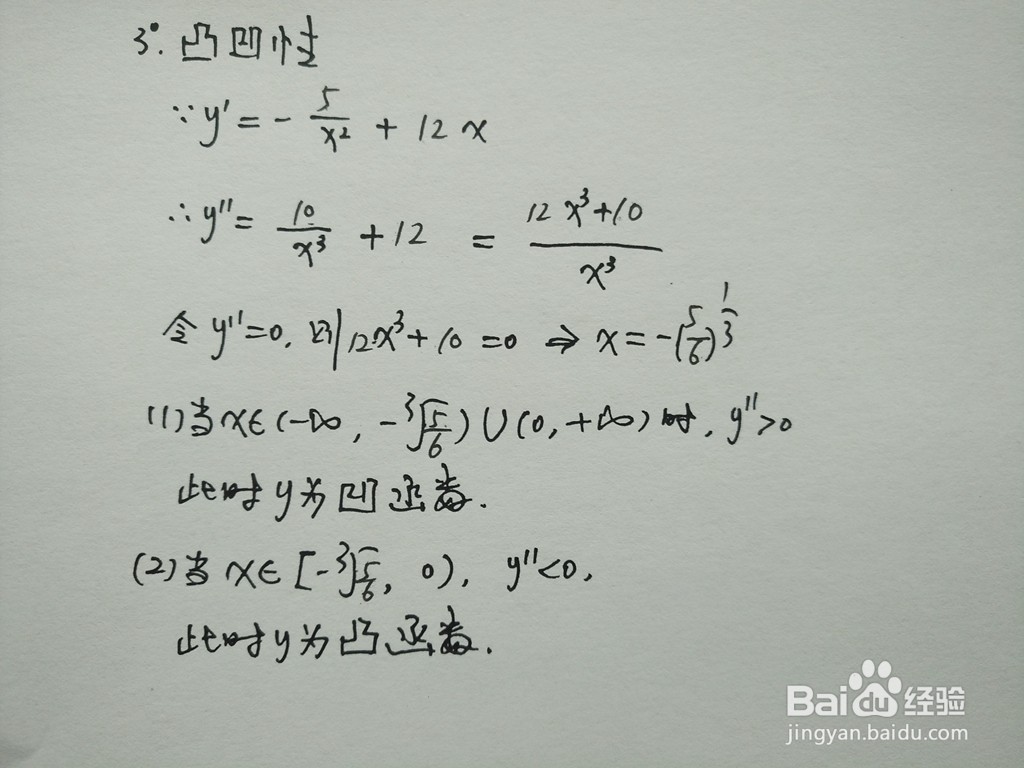 3°. 凸凹性
∵ y' = - 5/x² + 12x
∴ y'' = 10/x³ + 12 = (12x³+10)/x³
令 y''=0, 则 12x³+10=0 ⇒ x=-(5/6)^(1/3)
(1) 当 x∈(-∞, -³√(5/6))∪(0,+∞) 时, y''>0
此时 y 为凹函数.
(2) 当 x∈[-³√(5/6), 0), y''<0,
此时 y 为凸函数.
Baidu 经验
jingyan.baidu.com